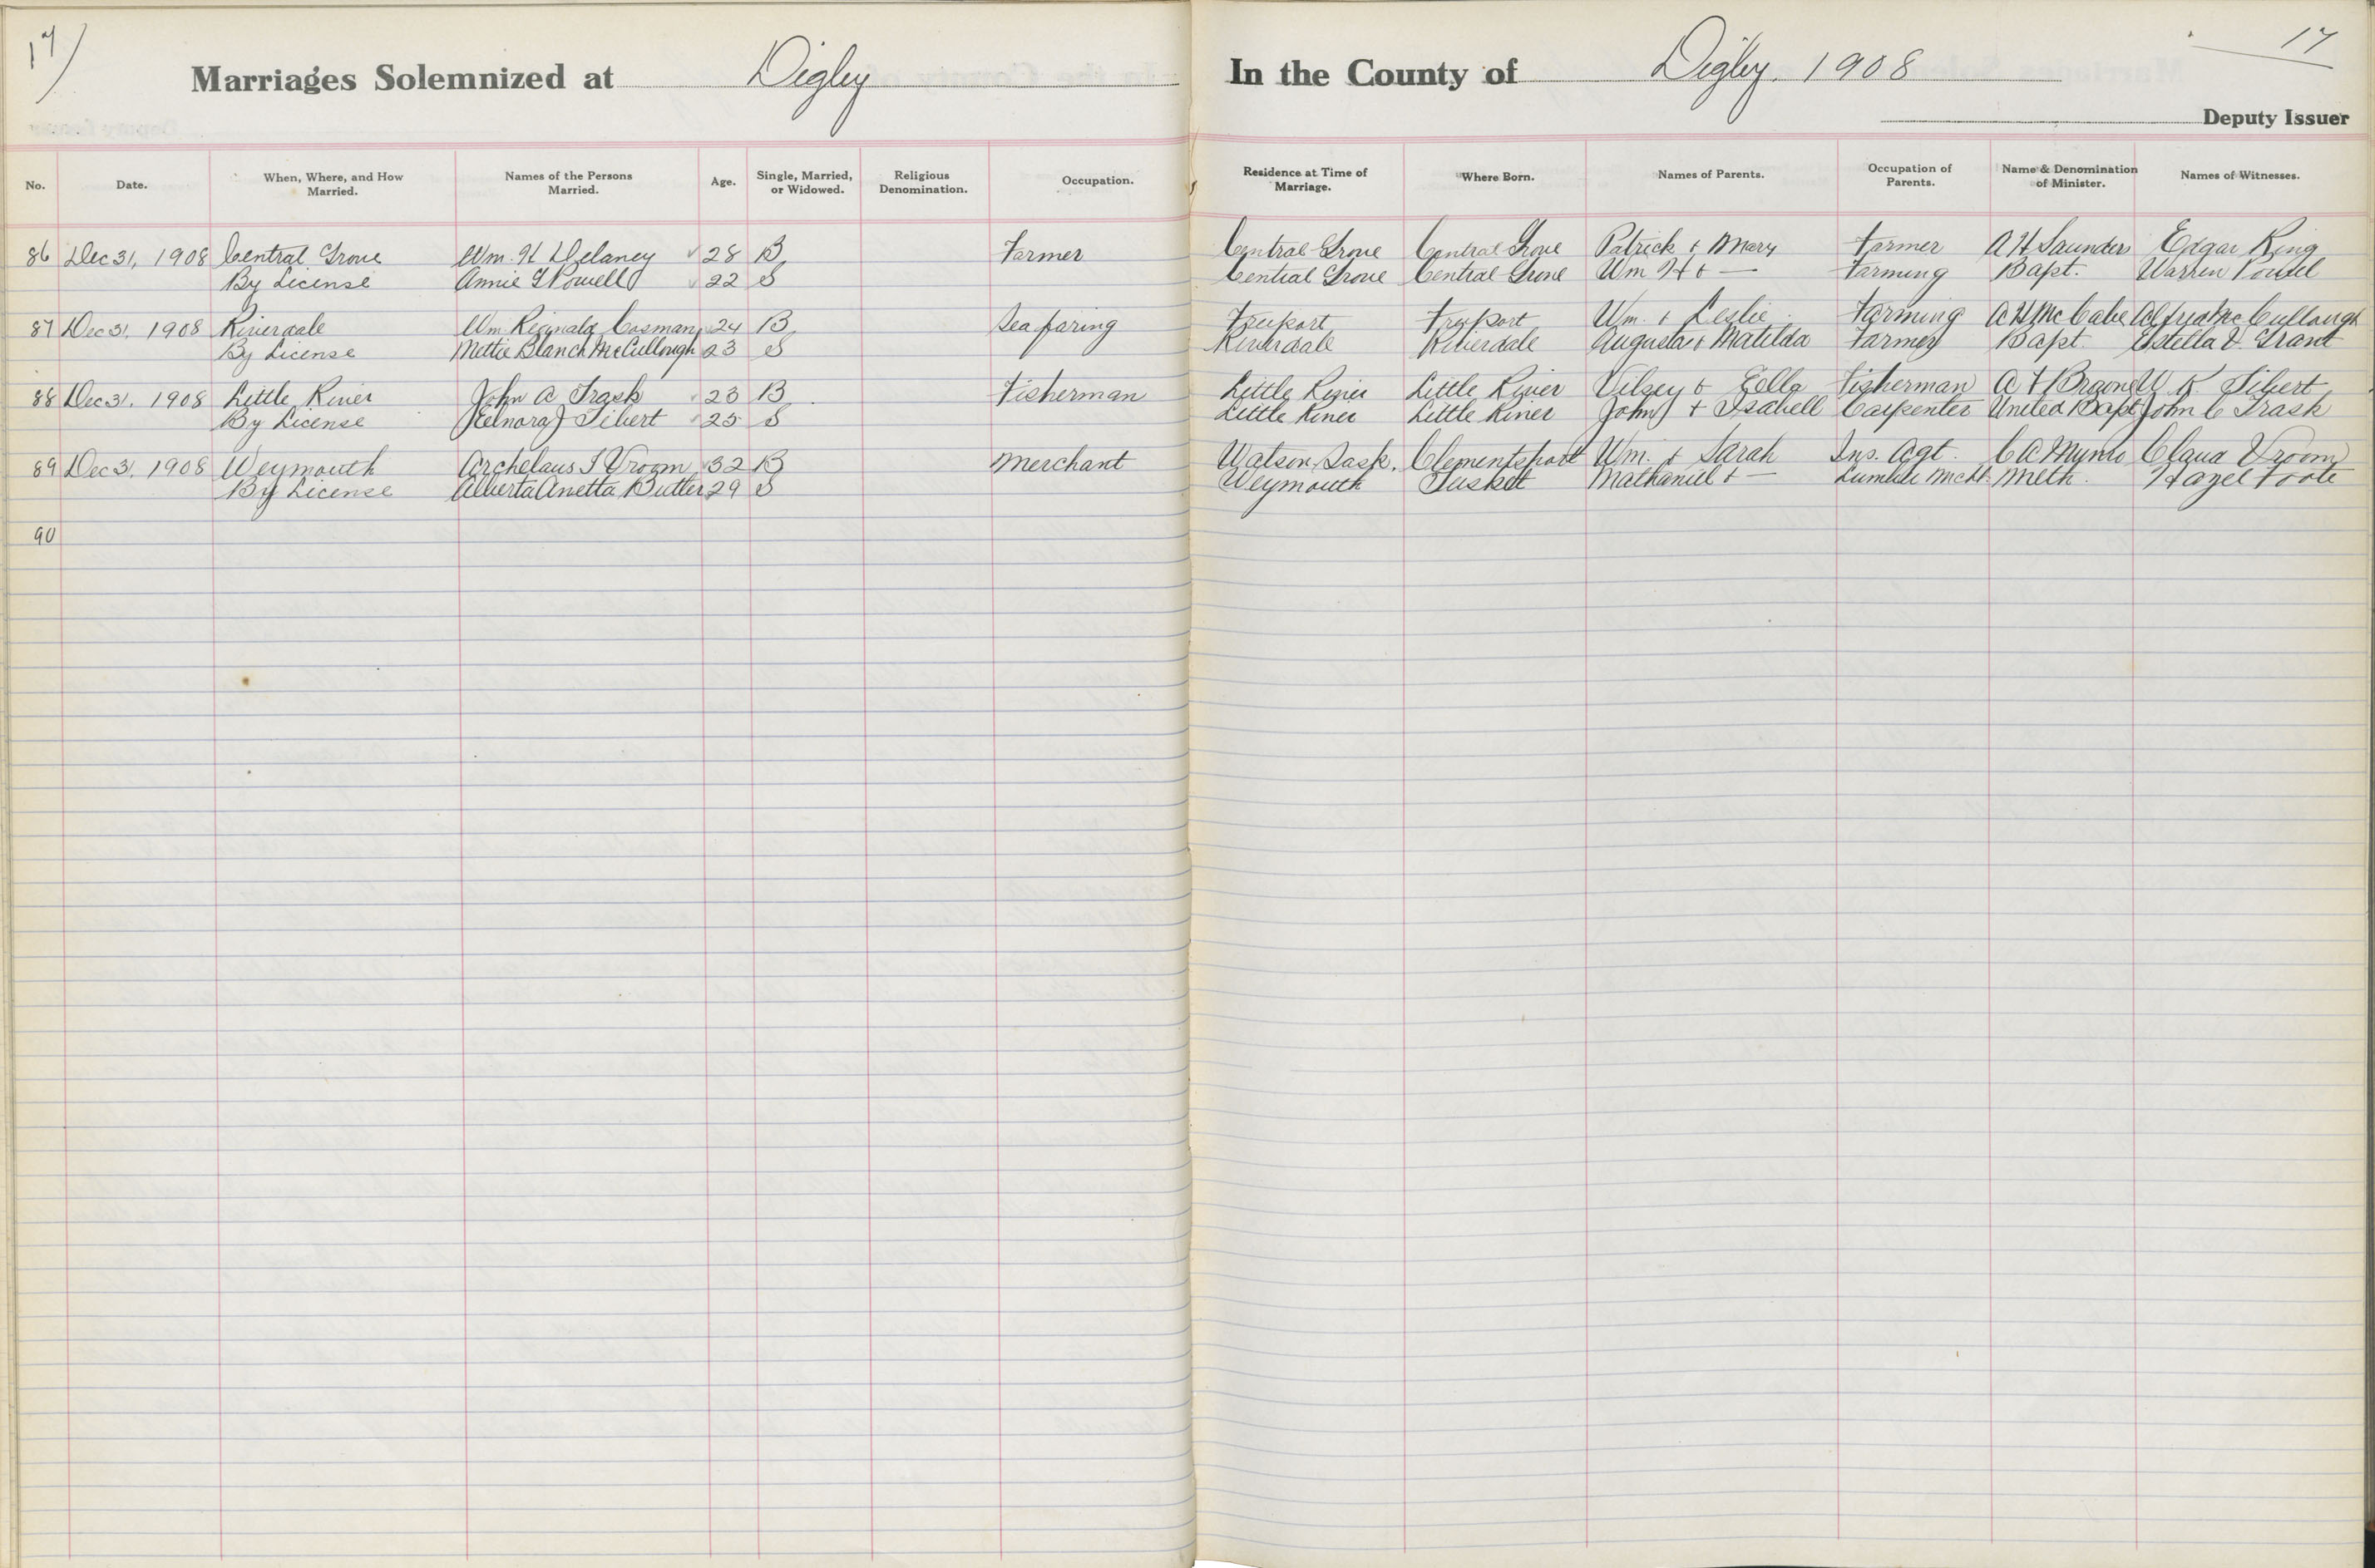 17
Marriages Solemnized at Digby
In the County of Digby. 1908
17
Deputy Issuer
No. Date. When, Where, and How Married. Names of the Persons Married. Age. Single, Married, or Widowed. Religious Denomination. Occupation. Residence at Time of Marriage. Where Born. Names of Parents. Occupation of Parents. Name & Denomination of Minister. Names of Witnesses.
86 Dec 31, 1908 Central Grove Wm. H Delaney 28 B Farmer Central Grove Central Grove Patrick & Mary Farmer A H Saunders Edgar King
By License Annie G Powell 22 S Central Grove Central Grove Wm H & — Farming Bapt. Warren Powell
87 Dec 31. 1908 Riverdale Wm. Reginald Cosman 24 B Sea faring Freeport Freeport Wm. & Leslie Farming A H McCabe Alfred McCullough
By License Mettie Blanch McCullough 23 S Riverdale Riverdale Augustas & Matilda Farmer Bapt Estella V. Grant
88 Dec 31. 1908 Little River John A Trask 23 B Fisherman Little River Little River Vilsey & Zella Fisherman W K Tibert
By License Elnora J Tibert 25 S Little River Little River John J & Isabell Carpenter United Bapt John C Trask
89 Dec 31. 1908 Weymouth Archelaus I Vroom 32 B Merchant Watson, Sask. Clementsport Wm. & Sarah Ins. Agt. C A Munro Claud Vroom
By License Alberta Anetta Butler 29 S Weymouth Tusket Nathaniel & — Lumber Mcht. Meth. Hazel Foote
90